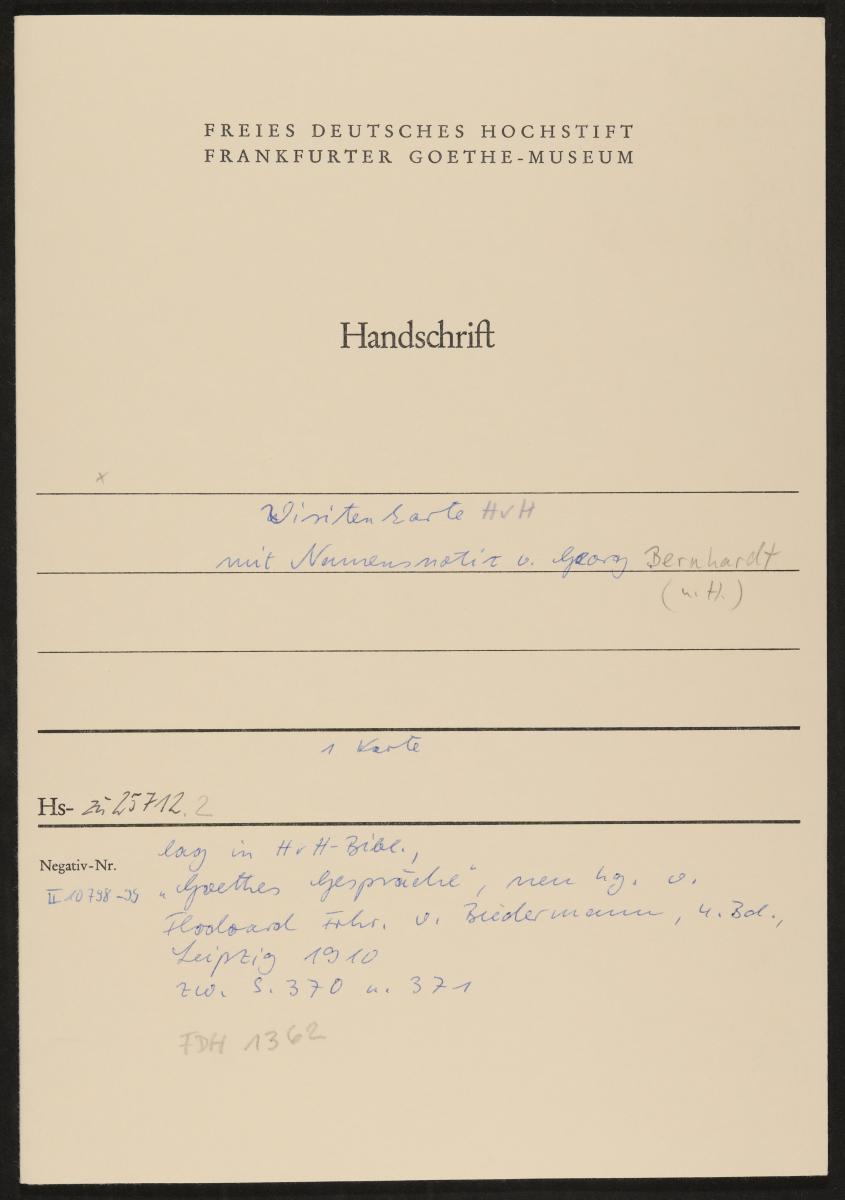 FREIES DEUTSCHES HOCHSTIFT
FRANKFURTER GOETHE-MUSEUM
Handschrift
x
Visitenkarte HvH
mit Namensnotiz v. Georg Bernhardt
(u. H.)
1 Karte
Hs- zu 25712.2
lag in HvH-Bibl.,
Negativ-Nr.
II 10798-99
„Goethes Gespräche“, neu hg. v.
Flodoard Frhr. v. Biedermann, 4. Bd.,
Leipzig 1910
zw. S. 370 u. 371
FDH 1362